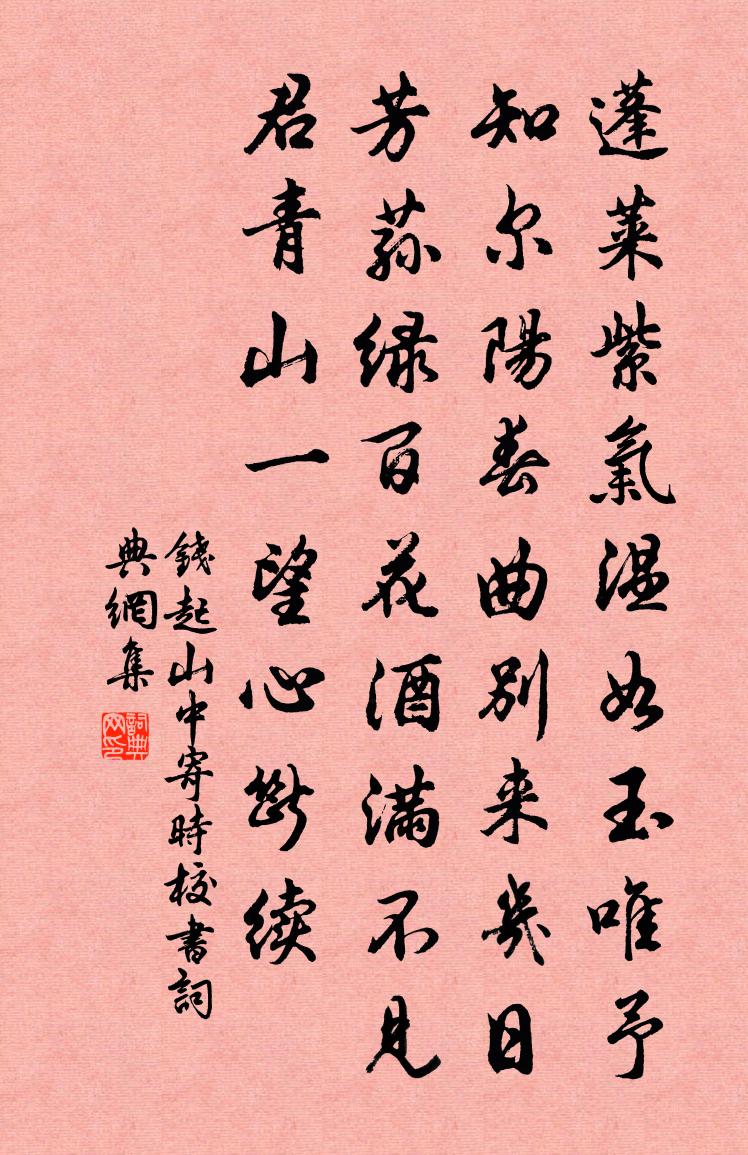 蓬莱紫氣温如玉唯予
知尔陽春曲别来幾日
芳荪绿百花酒满不見
君青山一望心斷续
錢起山中寄時校書詞
典網集
詞典
网印